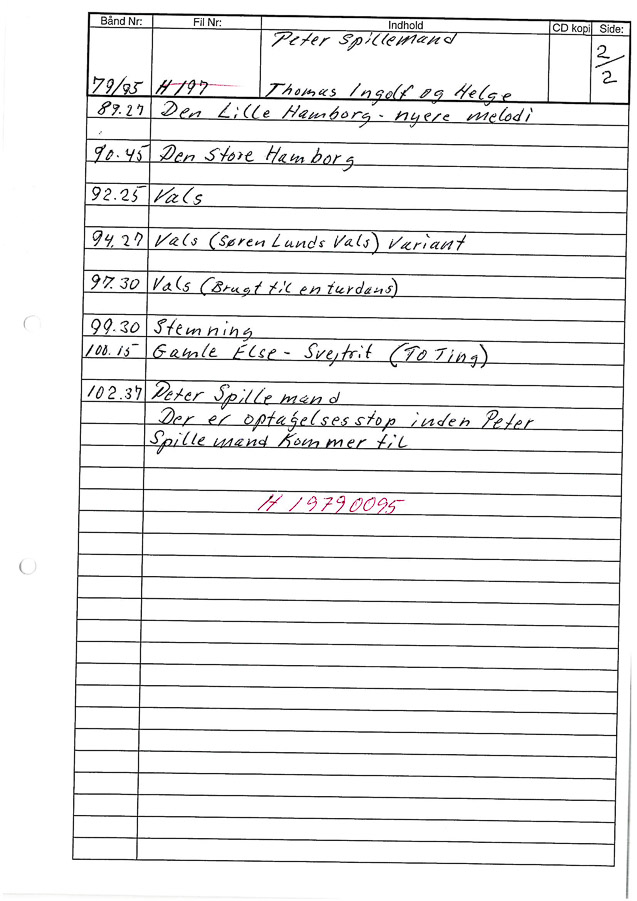 Bånd Nr: Fil Nr: Indhold CD kopi Side:
Peter Spillemand 2/2
79/95 H 197 Thomas Ingolf og Helge
89.27 Den Lille Hamborg - nyere melodi
90.45 Den Store Hamborg
92.25 Vals
94.27 Vals (Søren Lunds Vals) Variant
97.30 Vals (Brugt til en turdans)
99.30 Stemning
100.15 Gamle Else - Svejtrit (To Ting)
102.37 Peter Spillemand
Der er optagelsesstop inden Peter
Spillemand Kommer til
H 19790095